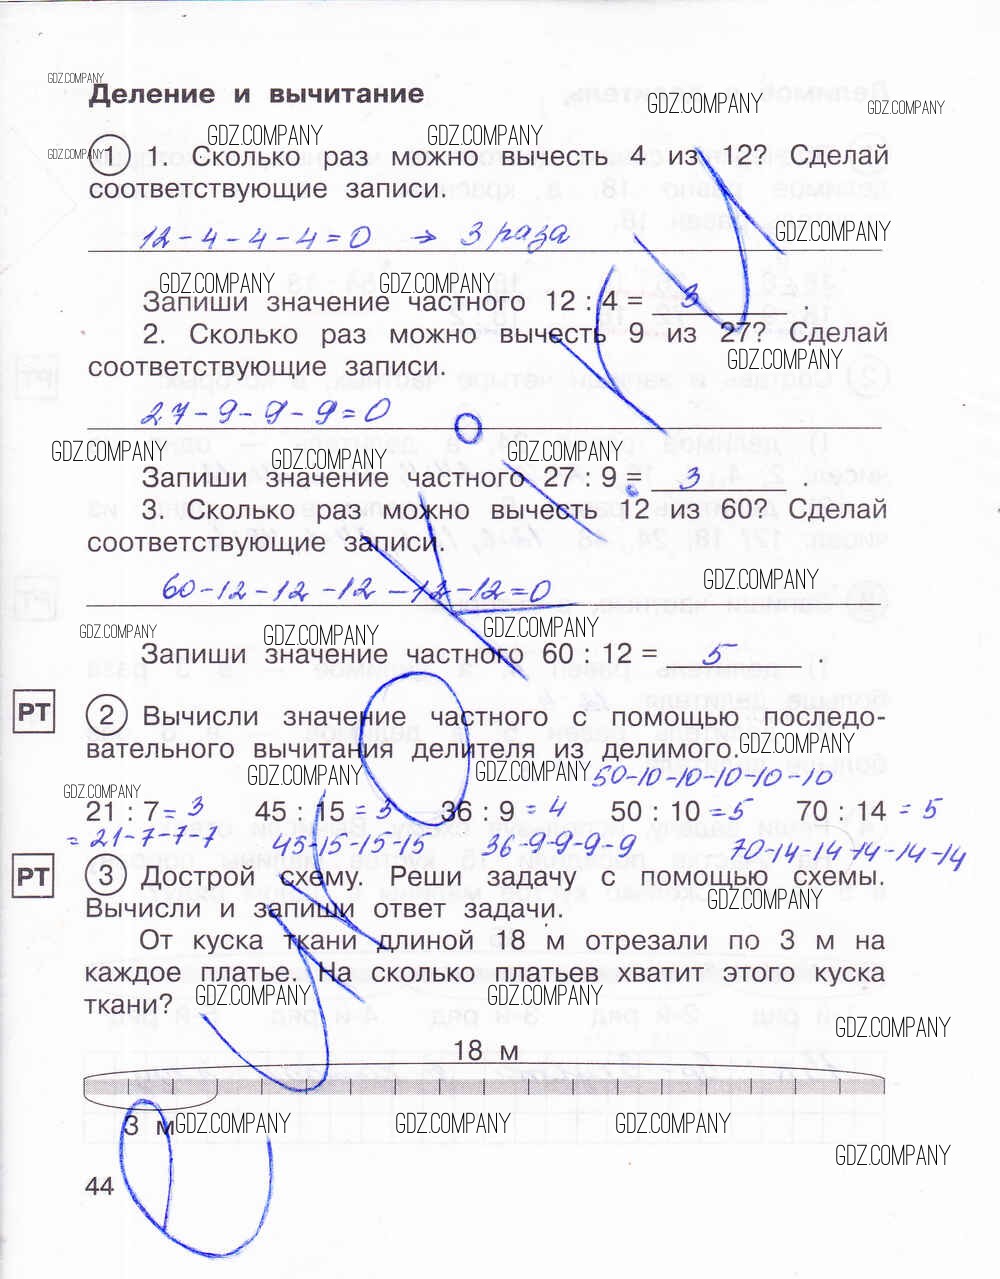 GDZ.COMPANY
Деление и вычитание
GDZ.COMPANY GDZ.COMPANY
GDZ.COMPANY GDZ.COMPANY
GDZ.COMPANY
1 1. Сколько раз можно вычесть 4 из 12? Сделай
соответствующие записи.
12-4-4-4=0 → 3 раза
GDZ.COMPANY
GDZ.COMPANY GDZ.COMPANY
Запиши значение частного 12 : 4 = 3 .
2. Сколько раз можно вычесть 9 из 27? Сделай
GDZ.COMPANY
соответствующие записи.
27-9-9-9=0
GDZ.COMPANY GDZ.COMPANY GDZ.COMPANY
Запиши значение частного 27 : 9 = 3 .
3. Сколько раз можно вычесть 12 из 60? Сделай
соответствующие записи.
GDZ.COMPANY
60-12-12-12-12-12=0
GDZ.COMPANY GDZ.COMPANY GDZ.COMPANY
Запиши значение частного 60 : 12 = 5 .
РТ 2 Вычисли значение частного с помощью последо-
вательного вычитания делителя из делимого.
GDZ.COMPANY
GDZ.COMPANY GDZ.COMPANY
50-10-10-10-10-10
GDZ.COMPANY
21 : 7 = 3 45 : 15 = 3 36 : 9 = 4 50 : 10 = 5 70 : 14 = 5
= 21-7-7-7 45-15-15-15 36-9-9-9-9 70-14-14-14-14-14
РТ 3 Дострой схему. Реши задачу с помощью схемы.
GDZ.COMPANY
Вычисли и запиши ответ задачи.
От куска ткани длиной 18 м отрезали по 3 м на
каждое платье. На сколько платьев хватит этого куска
ткани?
GDZ.COMPANY GDZ.COMPANY
GDZ.COMPANY
18 м
3 м
GDZ.COMPANY GDZ.COMPANY GDZ.COMPANY
GDZ.COMPANY
44